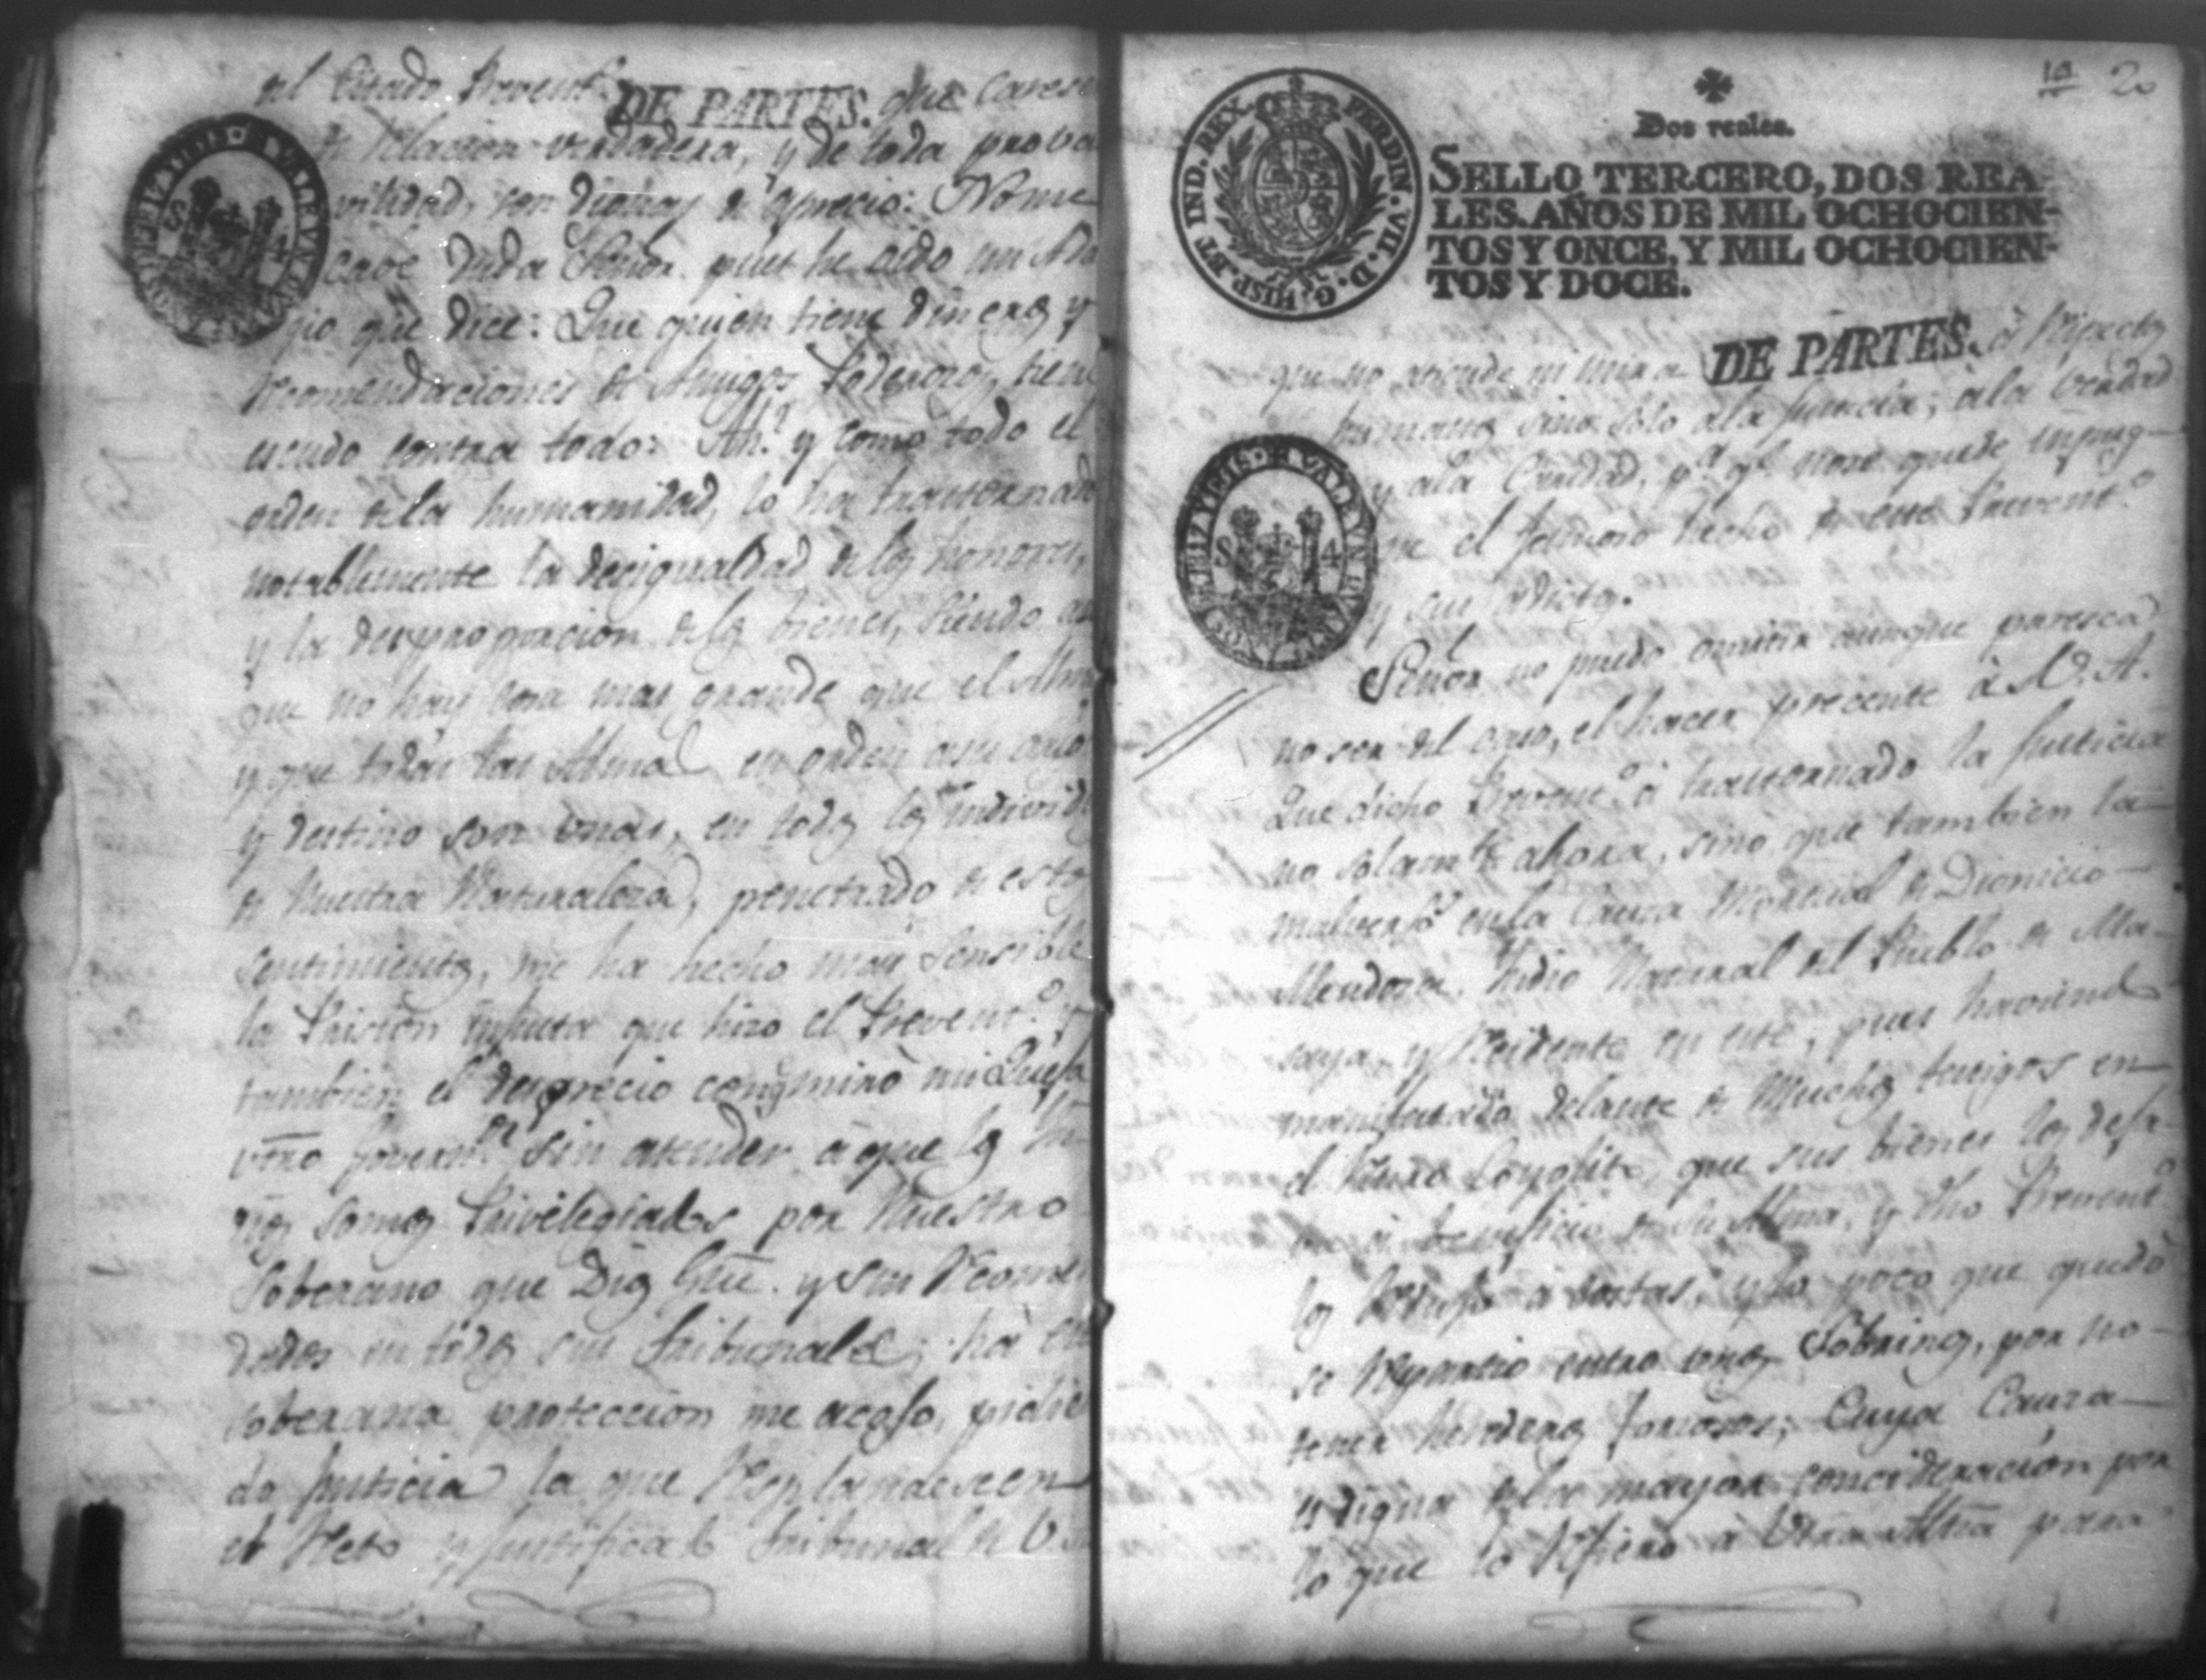 el Citado Prevent.º DE PARTES. que caresc
de relacion verdadera, y de toda proba
vilidad, son dignas de aprecio: No me
cave duda Señor pues he oido un Ada
gio que dice: Que quien tiene dineros y
recomendaciones de Amigos Poderosos, tiene
escudo contra todo: Ah.! y como todo el
orden de la humanidad, lo ha trastornado
notablemente la desigualdad de los honores,
y la desproporcion de los bienes, siendo
que no hay cosa mas grande que el Alma
y que todas las Almas en orden a su
y destino son unas, en todos los individ
de Nuestra Naturaleza, penetrado de estos
sentimientos, me ha hecho mas sensible
la Pricion injusta que hizo el Prevent.º y
tambien el desprecio con q. miró mi Quexa
vtrō Govern.ºr sin atender á que los In
dios somos Privilegiados por Nuestro
Soberano que Dios Güe. y sus recomen
dados en todos sus Tribunales;
soberana proteccion me acojo, pidien
do Justicia la que resplandesce en
el recto y justificado Tribunal de V.
19 20
Dos reales.
SELLO TERCERO, DOS REA-
LES. AÑOS DE MIL OCHOCIEN-
TOS Y ONCE, Y MIL OCHOCIEN-
TOS Y DOCE.
FERDIN. VII. D. G. HISP. ET IND. REX
que no atiende ni mira DE PARTES. á respectos
humanos sino solo a la Justicia, á la verdad
y á la Caridad, p.ª q.e no se quede inpug-
ne el hecho de este Prevent.º
y sus adictos.
Señor no puedo omitir aunque paresca
no ser del caso, el hacer precente á V. A.
Que dicho Prevent.º á trastornado la Justicia
no solam.te ahora, sino que tambien la
malversó en la Causa Mortual de Dionicio
Mendoza Indio Natural del Pueblo de Ma-
saya, y recidente en este; pues haviendo
manifestado delante de Muchos testigos en
el que sus bienes los dexa-
va á beneficio de su Alma, y dho Prevent.º
los redujo á costas, y lo poco que quedó
se repartió entre unos Sobrinos, por no
tener herederos forsosos; Cuya Causa
es digna de la mayor concideracion por
lo que lo refiero á Vtrā Altēā para